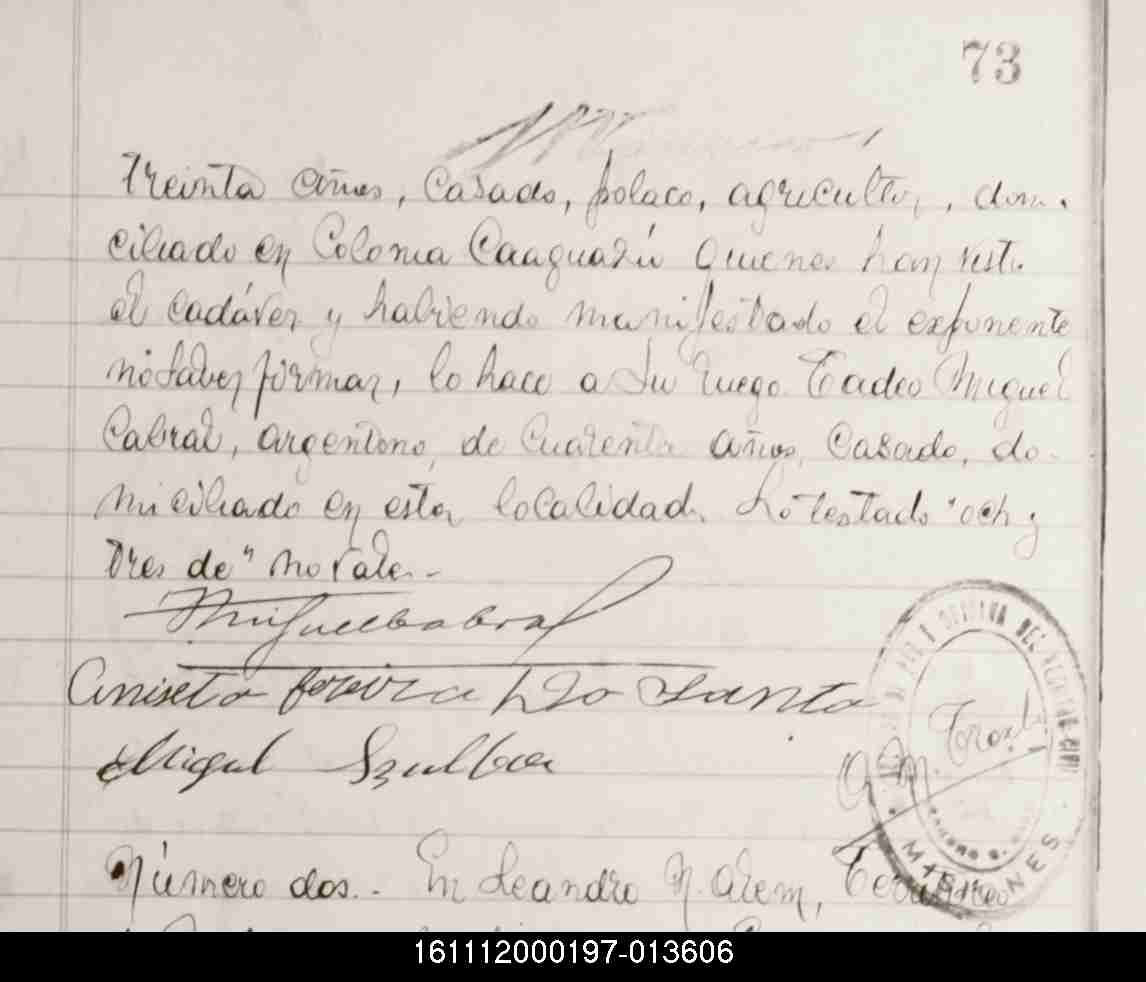 73
treinta años, casado, polaco, agricultor, domi
ciliado en Colonia Caaguazú quienes han visto
el cadáver y habiendo manifestado el exponente
no saber firmar, lo hace a su ruego Tadeo Miguel
Cabral, argentino, de cuarenta años, casado, do-
miciliado en esta localidad. Lo testado "och y
tres de" no vale.-
Miguel Cabral
Aniseto Pereira Do Santo
Migul Szulba
DEL REGISTRO CIVIL
MISIONES
Número dos.- En Leandro N. Alem, Territorio
161112000197-013606